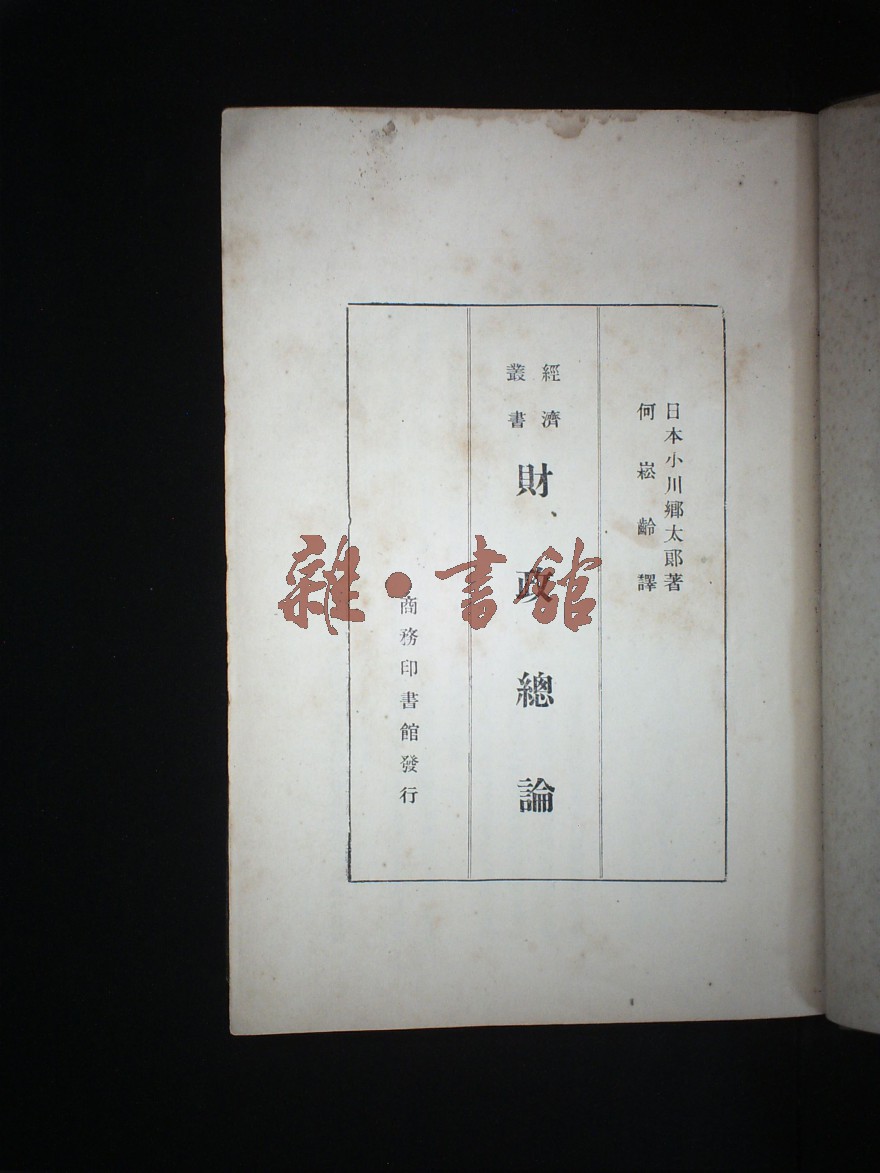 日本小川鄉太郎著
何崧齡譯
經濟
叢書
財政總論
商務印書館發行
雜·書館